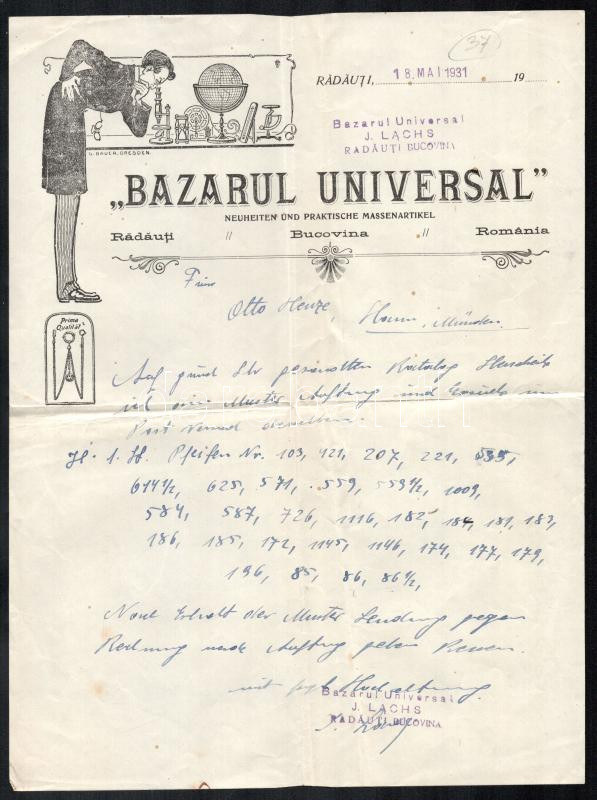 37
RĂDĂUȚI, 18. MAI 1931 19
Bazarul Universal
J. LACHS
RADĂUȚI BUCOVINA
G. BAUER, DRESDEN.
„BAZARUL UNIVERSAL”
NEUHEITEN UND PRAKTISCHE MASSENARTIKEL
Rădăuți // Bucovina // România
Firma
Otto Henze, Hann. Münden.
Prima
Qualität
Auf grund Ihr gesandten Katalog
ich ein Muster Auftrag und
Post
St. Pfeifen Nr. 103, 121, 207, 221, 535,
614 1/2, 625, 571, 559, 559 1/2, 1009,
584, 587, 726, 1116, 182, 184, 181, 183,
186, 185, 172, 1145, 1146, 174, 177, 179,
196, 85, 86, 86 1/2,
Nach Erhalt der Muster Sendung gegen
Rechnung Auftrag geben
mit Hochachtung.
Bazarul Universal
J. LACHS
RADĂUȚI BUCOVINA